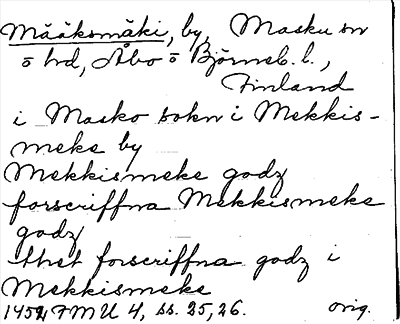 Määksmäki, by, Masku sn
o hd, Åbo o Björneb. l.,
Finland
i Masko sokn i Mekkis-
meke by
Mekkismeke godz
forscriffna Mekkismeke
godz
thet forscriffna godz i
Mekkismeke
1452 FMU 4, ss. 25, 26. orig.